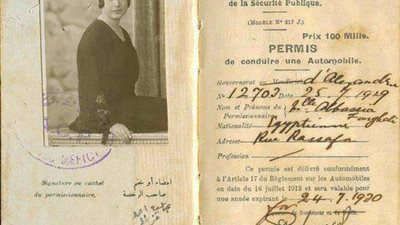 OFFICE
Signature ou cachet
du permissionnaire.
امضاء أو ختم
صاحب الرخصة
de la Sécurité Publique.
(MODÈLE Nº 217 J.)
Prix 100 Mills.
PERMIS
de conduire une Automobile.
Gouvernorat ou d'Alexandrie
Nº 12702 Date 25. 7. 1929
Nom et Prénoms du Mlle Abbassia
Permissionnaire.
Nationalité Egyptienne
Adresse Rue Rassafa
Profession
Ce permis est délivré conformément
à l'Article 17 du Règlement sur les Automobiles
en date du 16 juillet 1913 et sera valable pour
une année expirant 24. 7. 1930